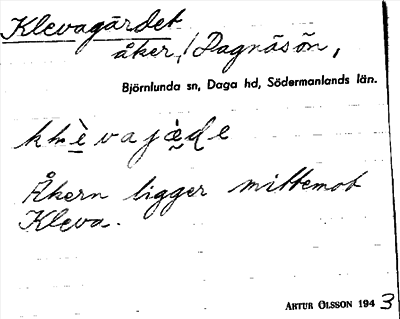 Klevagärdet
åker, Dagnäsön,
Björnlunda sn, Daga hd, Södermanlands län.
Åkern ligger mittemot
Kleva.
ARTUR OLSSON 1943